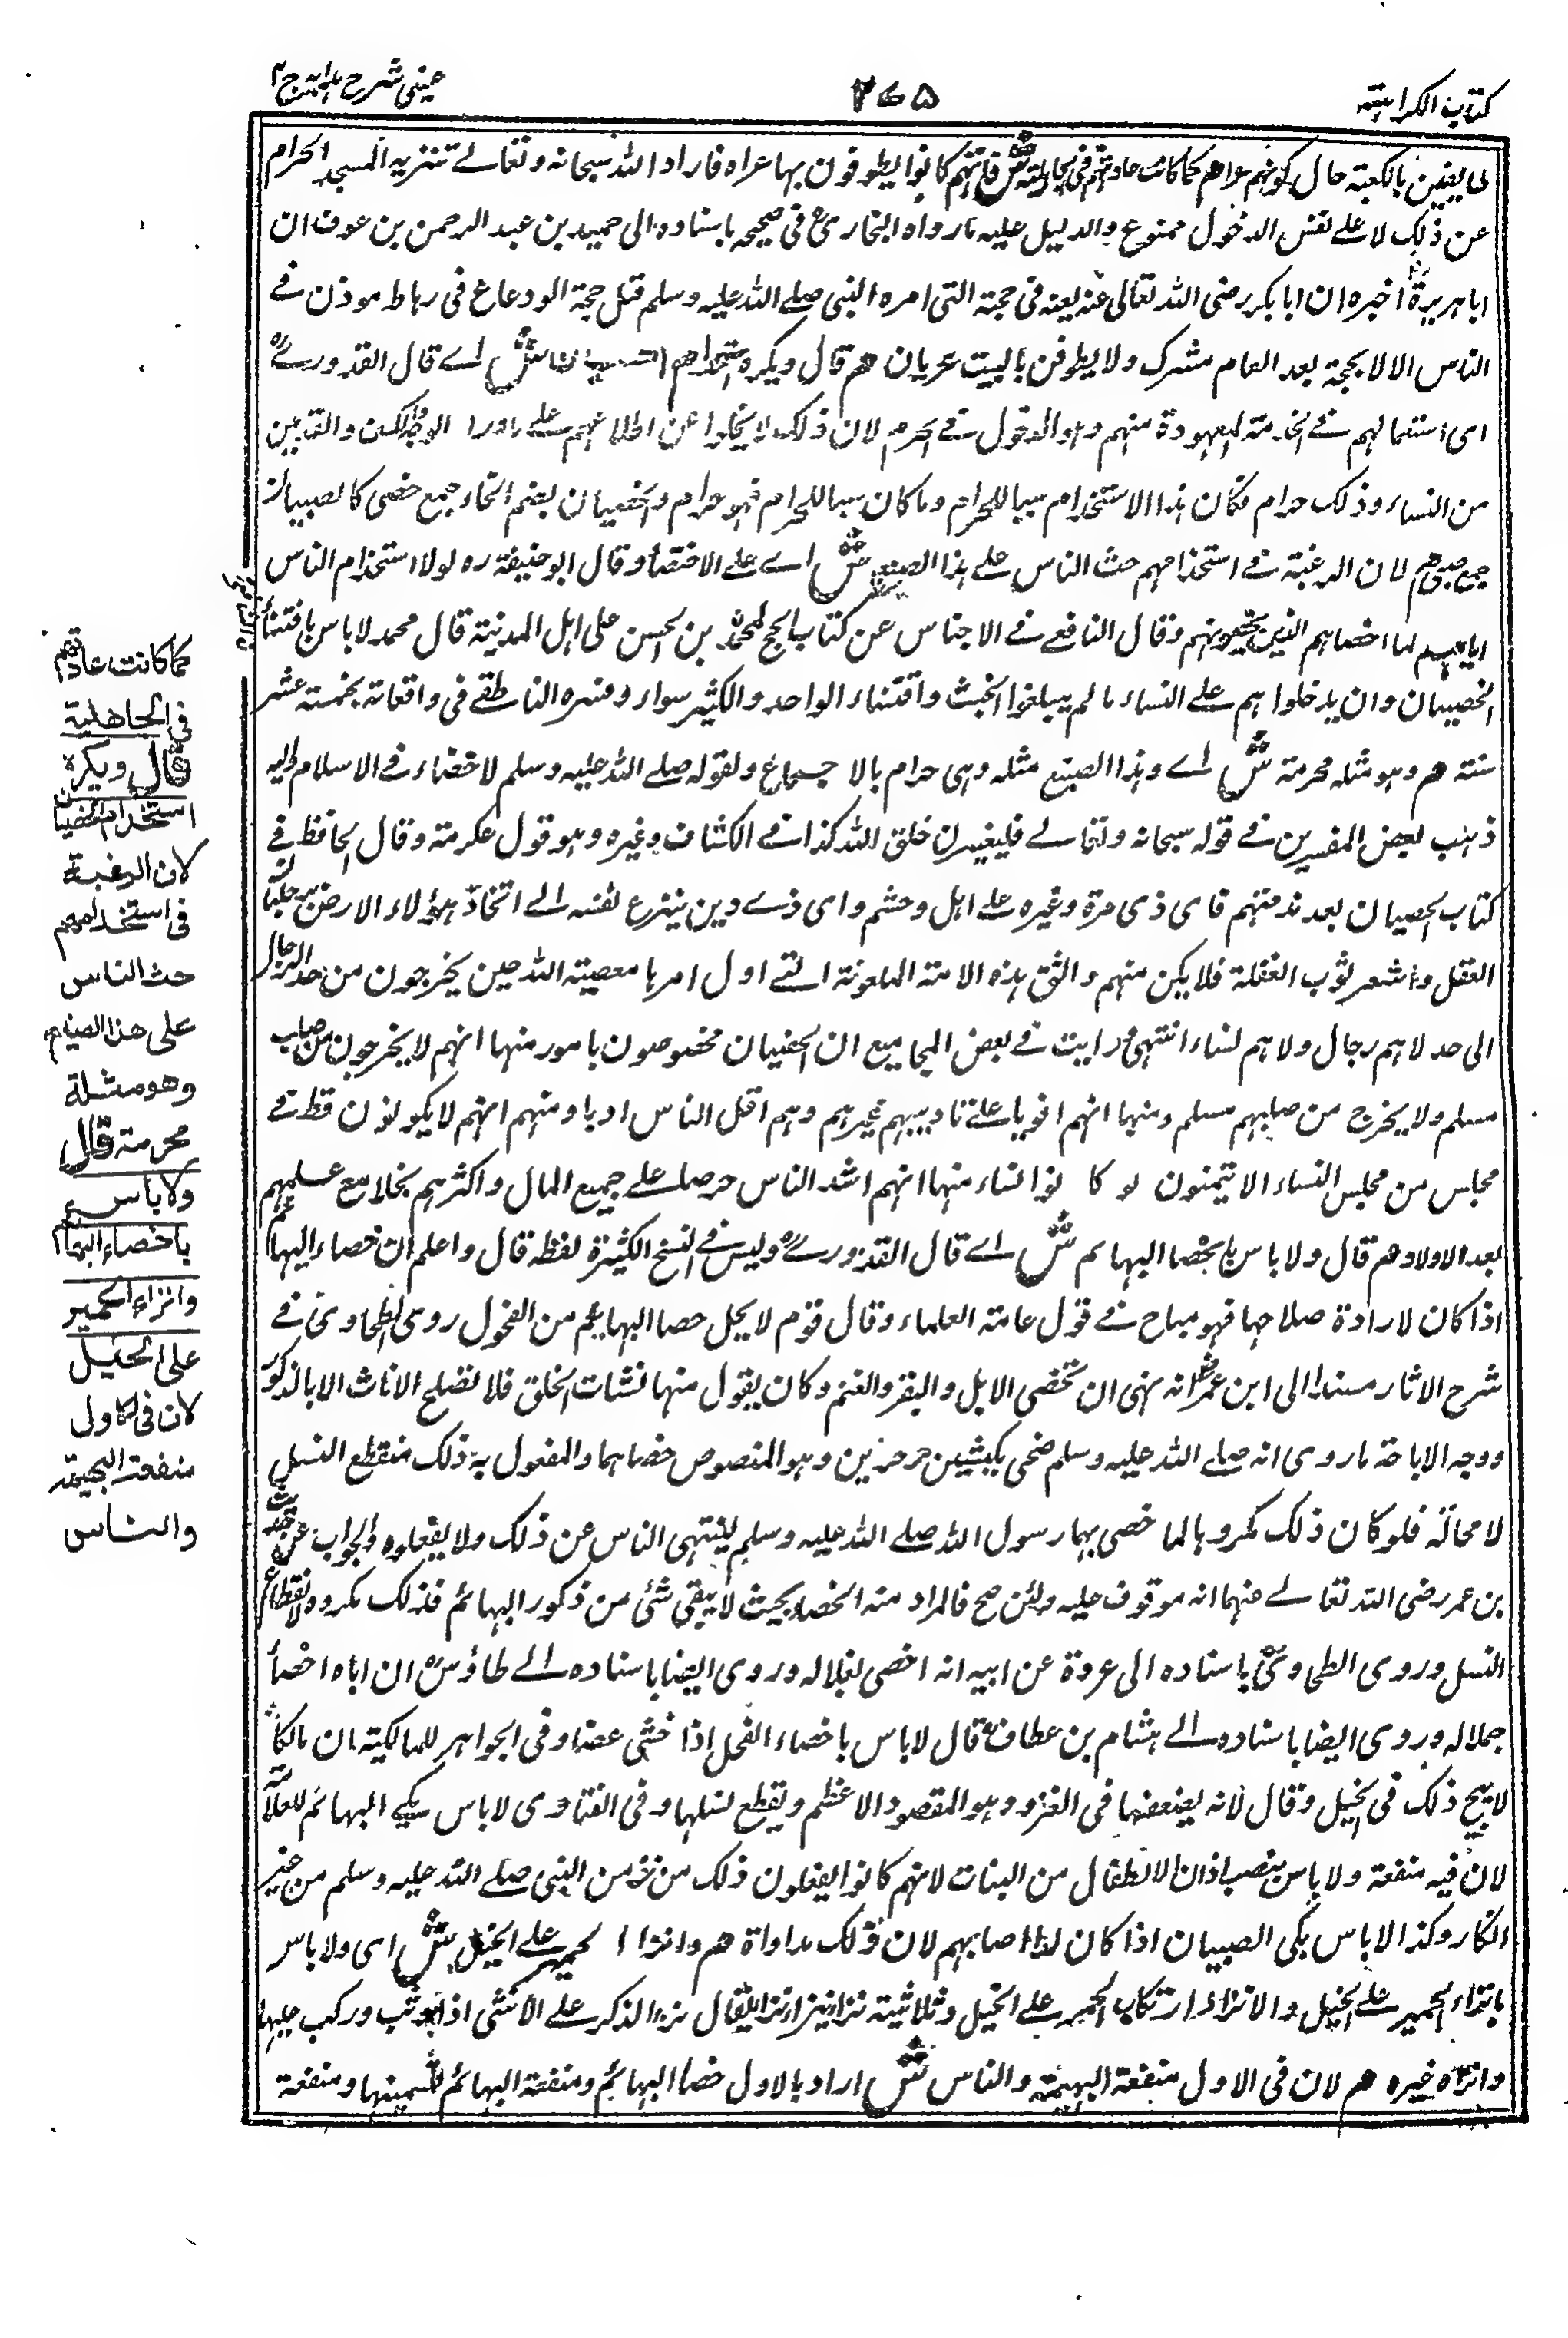 كتاب الكراهية
٢٦٥
عينى شرح هداية ج ٢
طايفين بالكعبة حال كونهم عراة هم كما كانت عادتهم فى الجاهلية ش فانهم كانوا يطوفون بها عراة فاراد الله سبحانه وتعالے تنزيه المسجد الحرام
عن ذلك لا علے نفس الدخول ممنوع والدليل عليه ما رواه البخارىؒ فى صحيحه باسناده الى حميد بن عبد الرحمن بن عوف ان
ابا هريرةؓ اخبره ان ابا بكر رضى الله تعالى عنه بعثه فى حجة التى امره النبى صلے الله عليه وسلم قبل حجة الوداع فى رهاط موذن فے
الناس الا لا يحج بعد العام مشرك ولا يطوفن بالبيت عريان هم قال ويكره استخدام ش اے قال القدورےؒ
اى استعمالهم فے الخدمة المعهودة منهم وهو الدخول فے الحرم لان ذلك لا يخلوا عن اطلاعهم علے والقدمين
من النساء وذلك حرام فكان هذا الاستخدام سببا للحرام وما كان سببا للحرام فهو حرام والخصيان بضم الخاء جمع خصى كالصبيان
جمع صبى هم لان الرغبة فے استخدامهم حث الناس علے هذا الصنيع ش اے علے الاختصاء وقال ابو حنيفة ره لولا استخدام الناس
اياهم لما اخصاهم الذين يخصونهم وقال النافعے فے الاجناس عن كتاب الحج لمحمدؒ بن الحسن على اهل المدينة قال محمد لا باس باقتناء
الخصيان وان يدخلوا هم علے النساء ما لم يبلغوا الخبث واقتناء الواحد والكثير سواء وفسره الناطقے فى واقعاته بخمسة عشر
سنة هم وهو مثله محرمة ش اے وهذا الصنيع مثله وهى حرام بالاجماع ولقوله صلے الله عليه وسلم لا خصاء فے الاسلام واليه
ذهب بعض المفسرين فے قوله سبحانه وتعالے فليغيرن خلق الله كذا فے الكشاف وغيره وهو قول عكرمة وقال الحافظ فے
كتاب الخصيان بعد ندمتهم فاى ذى مرة وغيره علے اهل وحشم واى ذے دين يتنزع نفسه الے اتخاذ هؤلاء الا رضى
العقل واشعر ثوب الغفلة فلا يكن منهم واثق بهذه الامة الملعونة التے اول امرها معصية الله حين يخرجون من حد الرجال
الى حد لا هم رجال ولا هم نساء انتهى ورايت فے بعض المجاميع ان الخصيان مخصوصون بامور منها انهم لا يخرجون من صلب
مسلم ولا يخرج من صلبهم مسلم ومنها انهم اقويا علے تاديبهم غيرهم وهم اقل الناس ادبا ومنهم انهم لا يكونون قط فے
مجلس من مجلس النساء الا يتمنون لو كانوا نساء منها انهم اشد الناس حرصا علے جميع المال واكثرهم بخلا مع علمهم
بعد الاولاد هم قال ولا باس باخصا البهائم ش اے قال القدورےؒ وليس فے النسخ الكثيرة لفظه قال واعلم ان خصاء البهائم
اذا كان لارادة صلاحها فهو مباح فے قول عامة العلماء وقال قوم لا يحل خصا البهائم من الفحول روى الطحاوىؒ فے
شرح الاثار مسندا الى ابن عمرؓ انه نهى ان تخصى الابل والبقر والغنم وكان يقول منها نشات الخلق فلا تصلح الاناث الا بالذكور
ووجه الاباحة ما روى انه صلے الله عليه وسلم ضحى بكبشين موجوئين وهو المنصوص خصاهما والمفعول به ذلك منقطع النسل
لا محالة فلو كان ذلك مكروها لما خصى بهما رسول الله صلے الله عليه وسلم لينتهى الناس عن ذلك ولا يفعلوه والجواب عن حديث
بن عمر رضى الله تعالے عنهما انه موقوف عليه ولئن صح فالمراد منه الخصاء بحيث لا يبقى شئ من ذكور البهائم فذلك مكروه لانقطاع
النسل وروى الطحاوىؒ باسناده الى عروة عن ابيه انه اخصى بغلا له وروى ايضا باسناده الے طاؤسؒ ان اباه اخصأ
جملا له وروى ايضا باسناده الے هشام بن عطافؒ قال لا باس باخصاء الفحل اذا خشى عضا وفى الجواهر للمالكية ان مالكاؒ
لا يبيح ذلك فى الخيل وقال لانه يضعفها فى الغزو وهو المقصود الاعظم ويقطع نسلها وفى الفتاوى لا باس بكى البهائم للعلامة
لان فيه منفعة ولا باس بثقب اذان الاطفال من البنات لانهم كانوا يفعلون ذلك من زمن النبى صلے الله عليه وسلم من غير
انكار وكذا لا باس بكى الصبيان اذا كان لداء اصابهم لان ذلك مداواة هم وانزاء الحمير علے الخيل ش اى ولا باس
بانزاء الحمير علے الخيل والانزاء ارتكاب الحمير علے الخيل وثلاثيته نزا ينزا نزا يقال نزء الذكر علے الانثى اذا وثب وركب عليها
وانزاه غيره هم لان فى الاول منفعة البهيمة والناس ش اراد بالاول خصا البهائم ومنفعة البهائم لتسمينها ومنفعة
كما كانت عادتهم
فى الجاهلية
قال ويكره
استخدام الخصيان
لان الرغبة
فى استخدامهم
حث الناس
على هذا الصنيع
وهو مثلة
محرمة قال
ولا باس
باخصاء البهائم
وانزاء الحمير
على الخيل
لان فى الاول
منفعة البهيمة
والناس